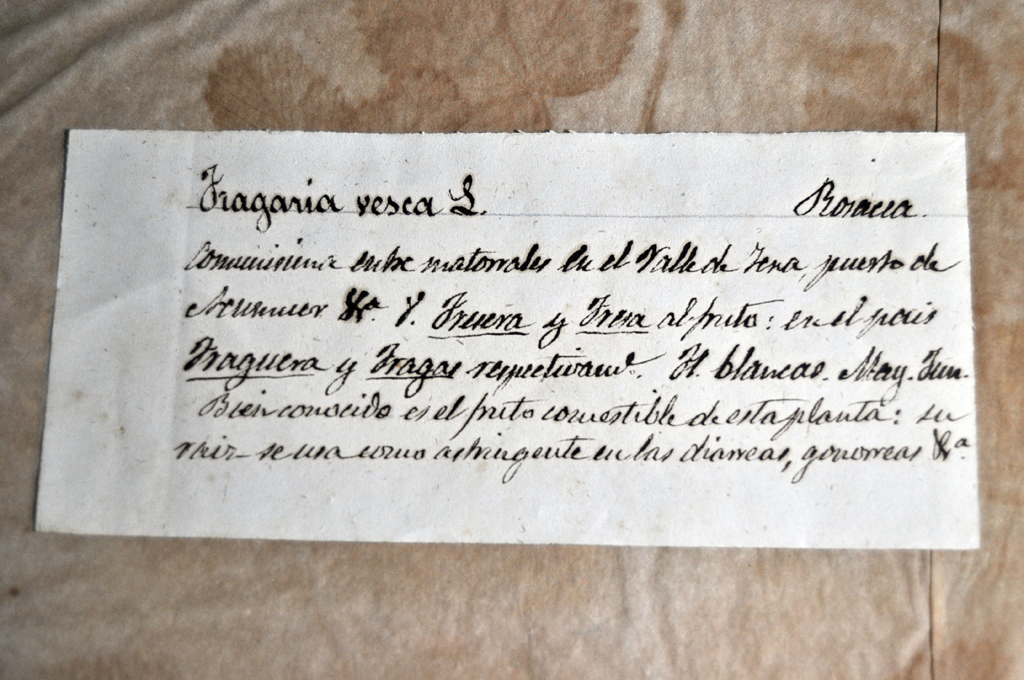 Fragaria vesca L. Rosacea.
Comunisima entre matorrales en el Valle de Tena, puerto de
&a. V. Fresera y Fresa al fruto: en el pais
Fraguera y Fragas respectivamte. Fl. blancas. May. Jun.
Bien conocido es el fruto comestible de esta planta: su
raiz se usa como astringente en las diarreas, gonorreas &a.